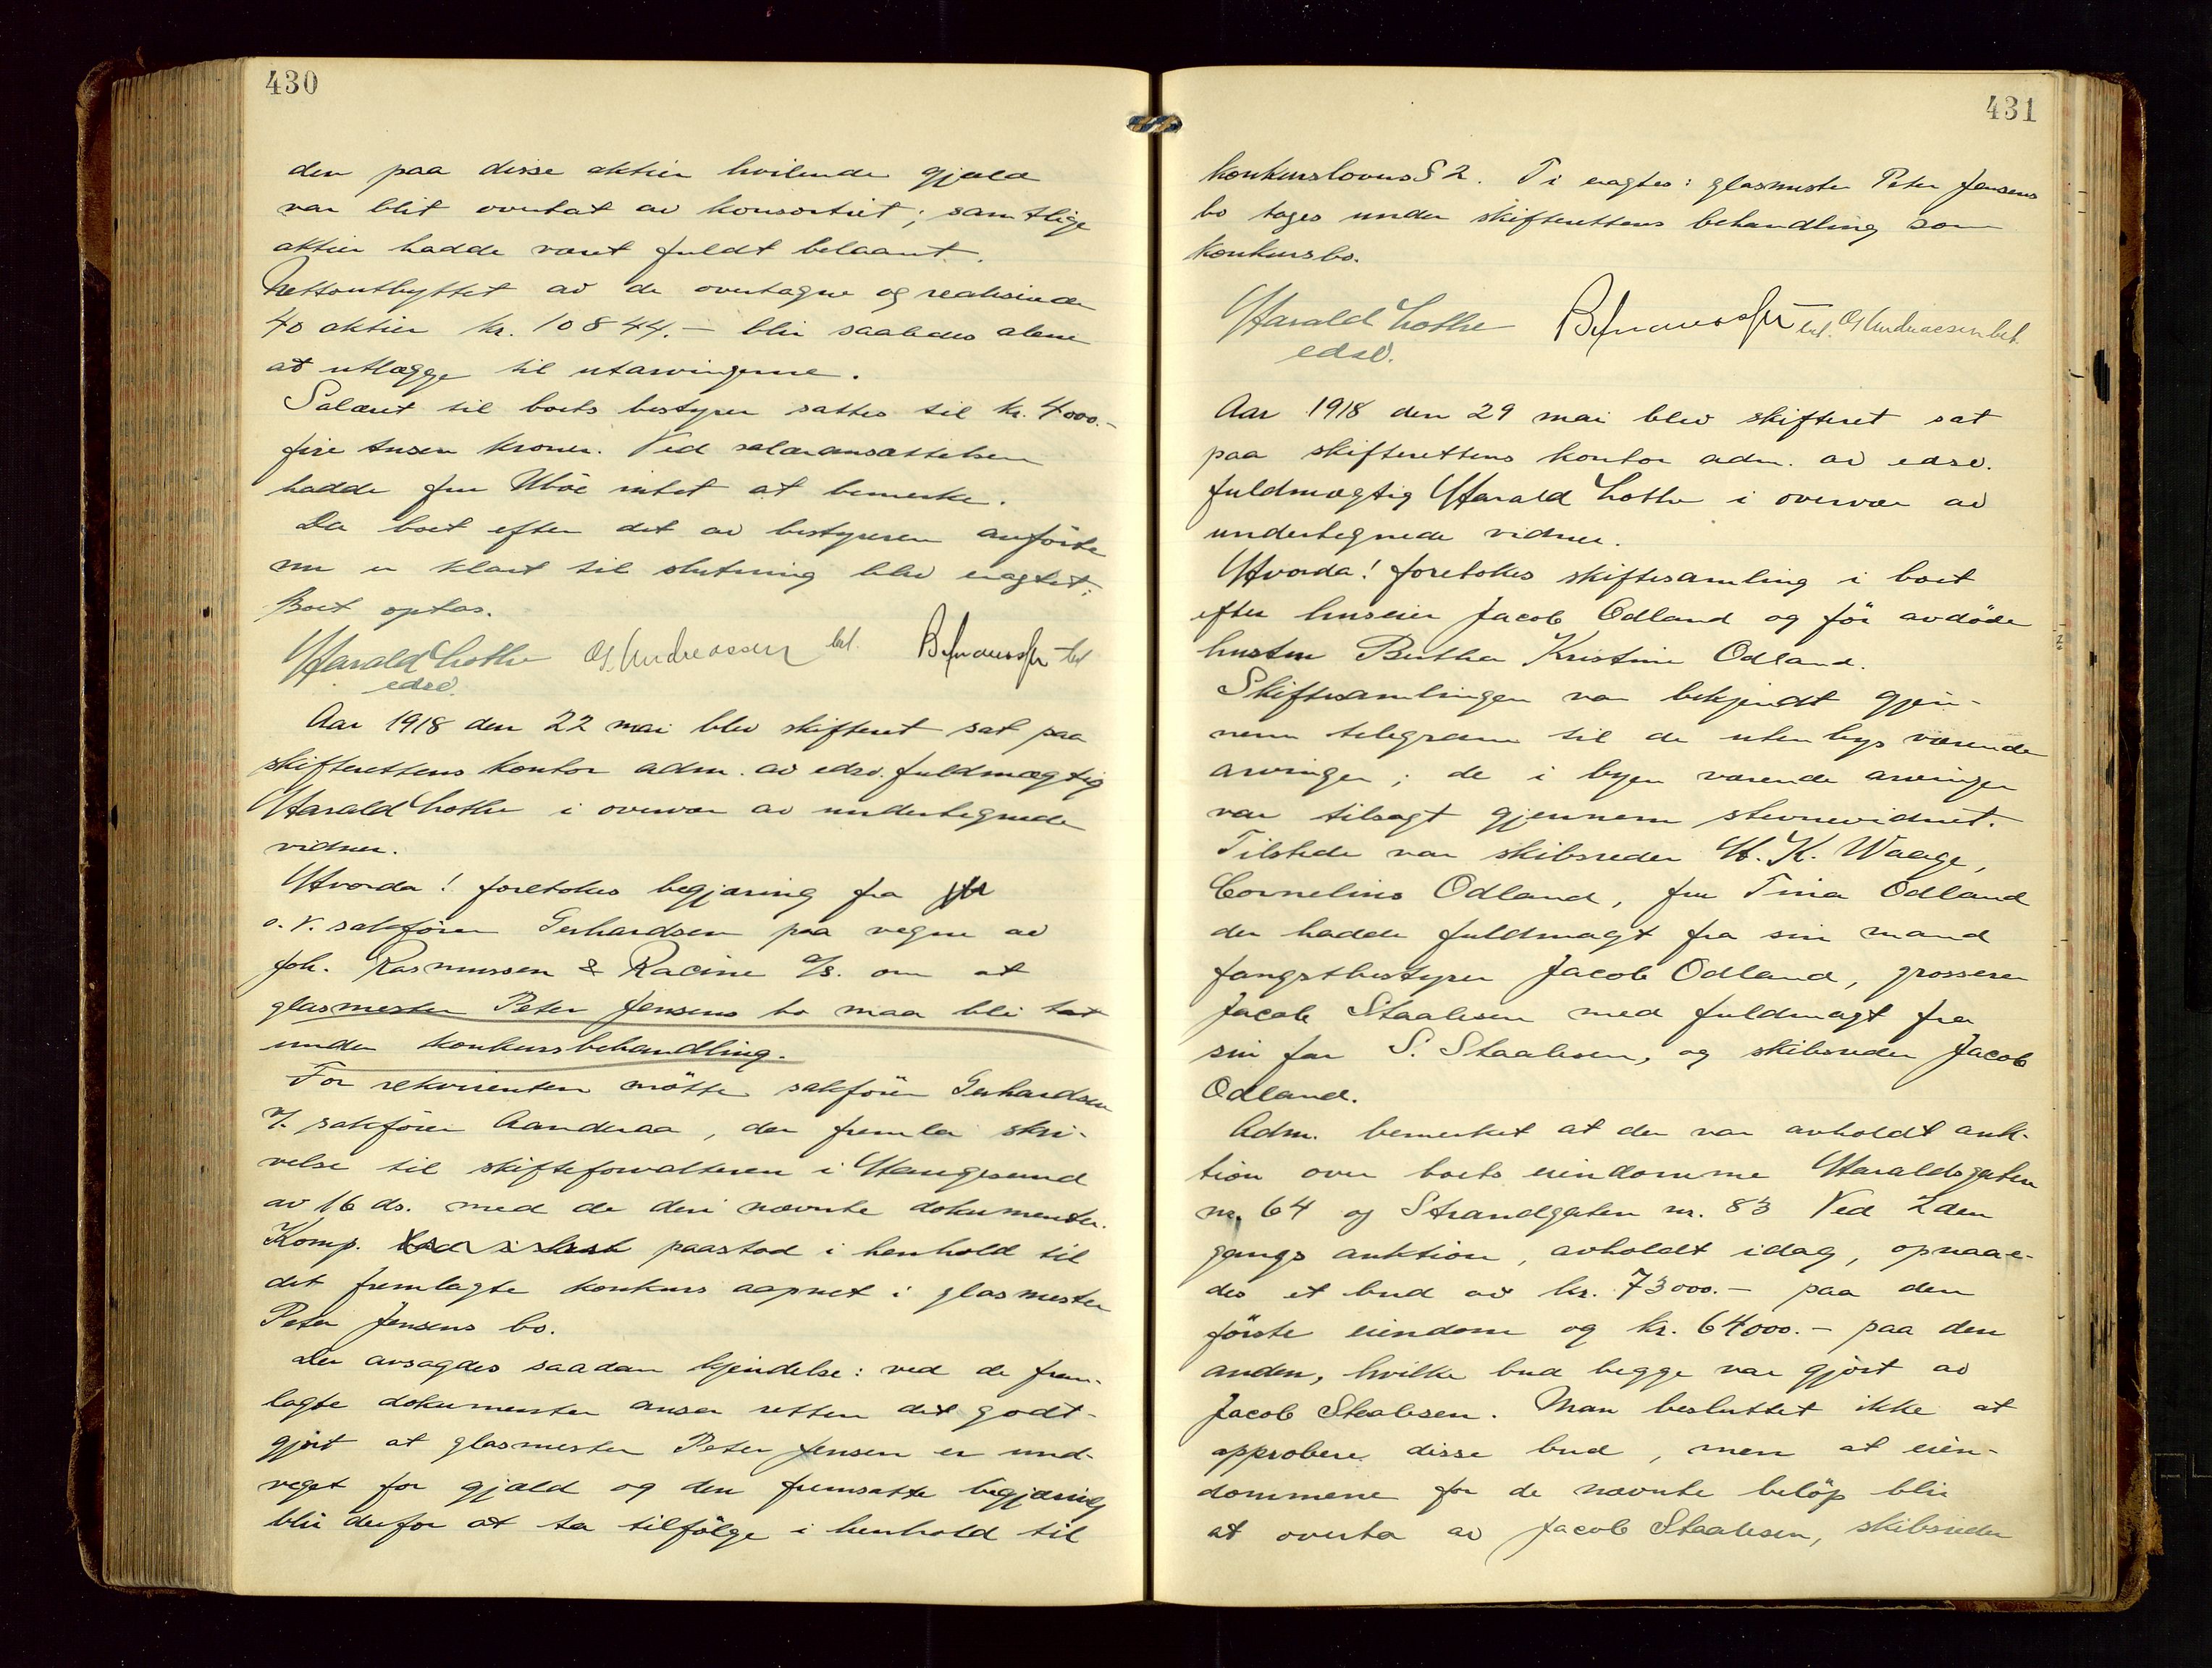 430
den paa disse aktier hvilende gjæld
var blit overtat av konsortiet; samtlige
aktier hadde været fuldt belaant.
Nettoutbyttet av de overtagne og realiserede
40 aktier kr. 10844.- blir saaledes alene
at utlægge til utarvingerne.
Salæret til boets bestyrer sattes til kr. 4000.-
fire tusen kroner. Ved salæransættelsen
hadde fru Uböe intet at bemerke.
Da boet efter det av bestyreren anförte
nu er klart til slutning blev eragtet:
Boet optas.
Harald Lothe O. Andreassen
edsv.
Aar 1918 den 22 mai blev skifteret sat paa
skifterettens kontor adm. av edsv. fuldmægtig
Harald Lothe i overvær av undertegnede
vidner.
Hvorda! foretokes begjæring fra
o.r. sakförer Gerhardsen paa vegne av
Joh. Rasmussen & Racine A/S. om at
glasmester Peter Jensens bo maa bli tat
under konkursbehandling.
For rekvirenten mötte sakförer Gerhardsen
v/. sakförer Aanderaa, der fremla skri-
velse til skifteforvalteren i Haugesund
av 16 ds. med de deri nævnte dokumenter.
Komp. paastod i henhold til
det fremlagte konkurs aapnet i glasmester
Peter Jensens bo.
Der avsagdes saadan kjendelse: ved de frem-
lagte dokumenter anser retten det godt-
gjort at glasmester Peter Jensen er und-
veget for gjæld og den fremsatte begjæring
blir derfor at ta tilfölge i henhold til
431
konkurslovens § 2. Ti eragtes: glasmester Peter Jensens
bo tages under skifterettens behandling som
konkursbo.
Harald Lothe O. Andreassen bet.
edsv.
Aar 1918 den 29 mai blev skifteret sat
paa skifterettens kontor adm. av edsv.
fuldmægtig Harald Lothe i overvær av
undertegnede vidner.
Hvorda! foretokes skiftesamling i boet
efter huseier Jacob Odland og för avdöde
hustru Berthe Kristine Odland.
Skiftesamlingen var bekjendt gjen-
nem telegram til de utenbys værende
arvinger; de i byen værende arvinger
var tilsagt gjennem stevnevidnet.
Tilstede var skibsreder H. K. Waage,
Cornelius Odland, fru Tina Odland
der hadde fuldmagt fra sin mand
fangstbestyrer Jacob Odland, grosserer
Jacob Staalesen med fuldmagt fra
sin far S. Staalesen, og skibsreder Jacob
Odland.
Adm. bemerket at der var avholdt auk-
tion over boets eiendomme Haraldsgaten
nr. 64 og Strandgaten nr. 83 Ved 2den
gangs auktion, avholdt idag, opnaae-
des et bud av kr. 73000.- paa den
förste eiendom og kr. 64000.- paa den
anden, hvilke bud begge var gjort av
Jacob Staalesen. Man besluttet ikke at
approbere disse bud, men at eien-
dommene for de nævnte belöp blir
at overta av Jacob Staalesen, skibsreder